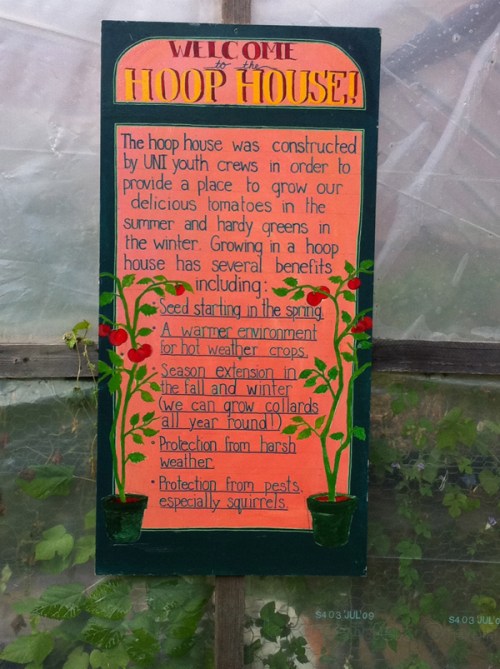 WELCOME
to the
HOOP HOUSE!
The hoop house was constructed
by UNI youth crews in order to
provide a place to grow our
delicious tomatoes in the
summer and hardy greens in
the winter. Growing in a hoop
house has several benefits
including:
• Seed starting in the spring.
• A warmer environment
for hot weather crops.
• Season extension in
the fall and winter
(we can grow collards
all year round!)
• Protection from harsh
weather
• Protection from pests,
especially squirrels.
S4 03 JUL'09
S4 03 JUL'0